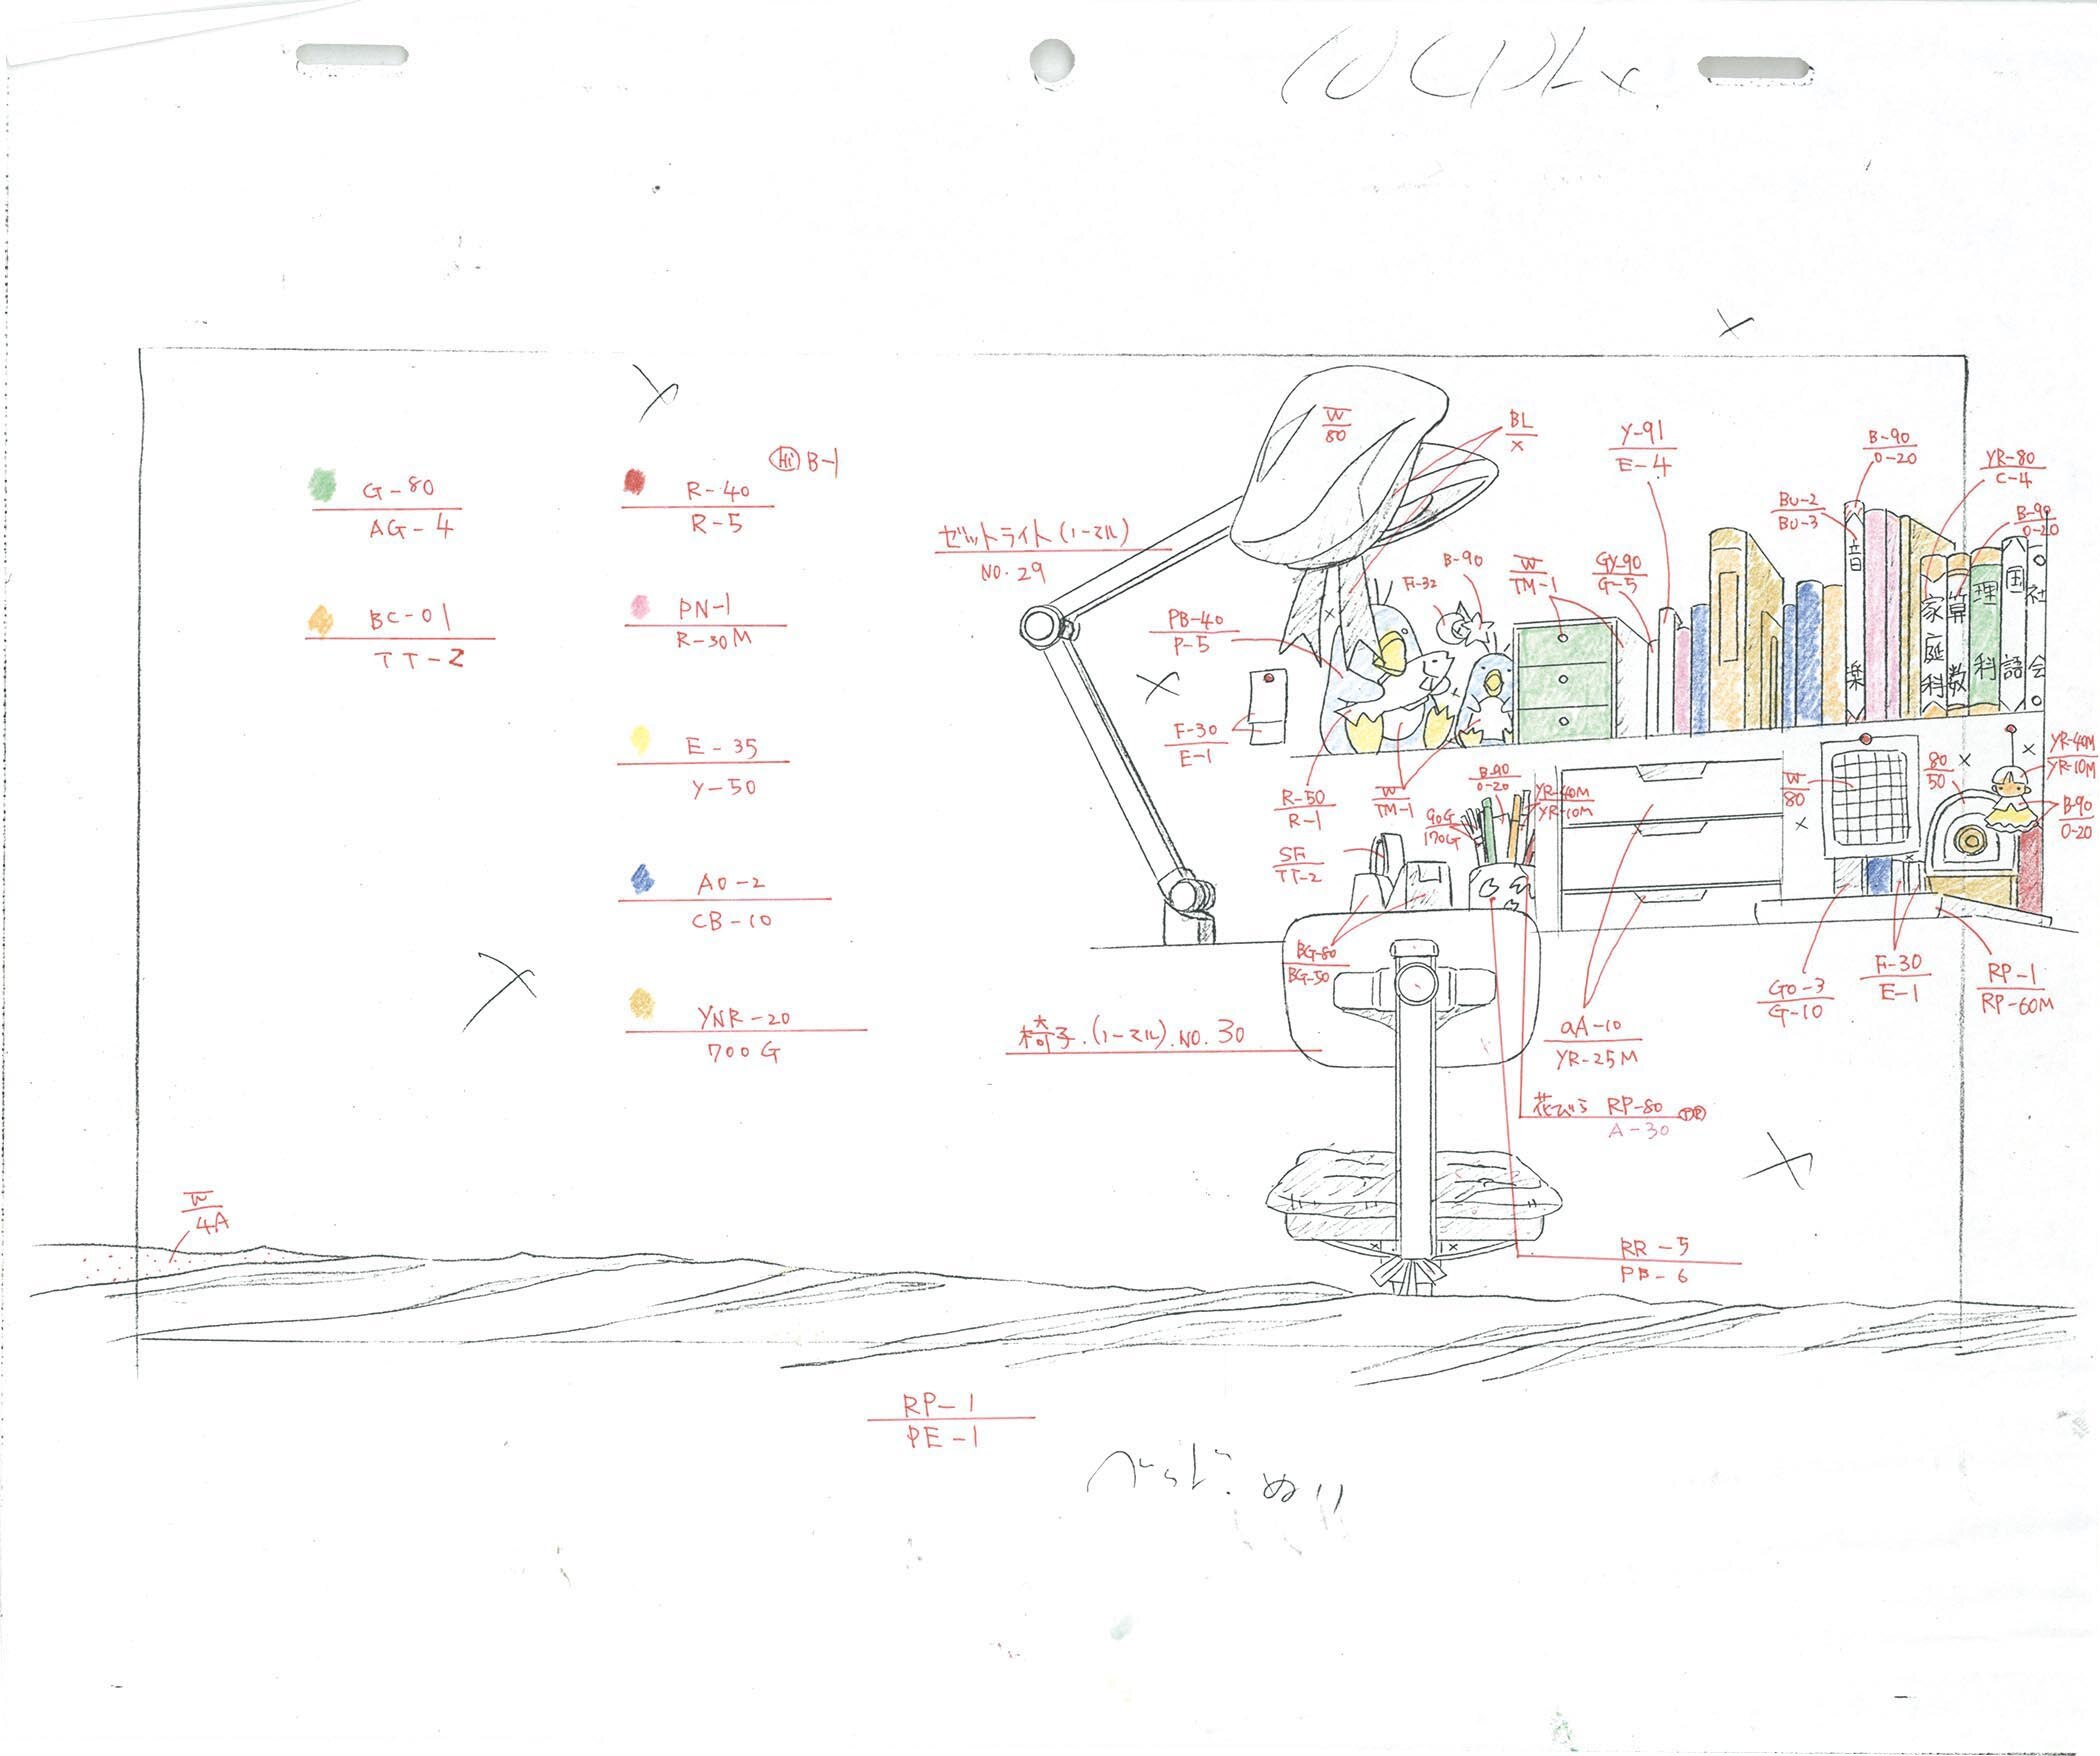 Hi B-1
G-80
AG-4
R-40
R-5
BC-01
TT-2
PN-1
R-30M
E-35
Y-50
AO-2
CB-10
YNR-20
700G
ゼットライト(ノーマル)
NO.29
W
80
BL
X
Y-91
E-4
B-90
0-20
YR-80
C-4
BU-2
BU-3
B-90
0-20
PB-40
P-5
B-90
W
TM-1
GY-90
G-5
音楽
家庭科
算数
理科
国語
社会
F-30
E-1
R-50
R-1
W
TM-1
B-90
0-20
YR-40M
YR-10M
90G
170G
SF
TT-2
W
80
80
50
YR-40M
YR-10M
B-90
0-20
BG-80
BG-50
椅子.(ノーマル).NO.30
YR-25M
GO-3
G-10
F-30
E-1
RP-1
RP-60M
花びら RP-80
A-30
RR-5
PB-6
W
4A
RP-1
PE-1
ベッド. ぬり